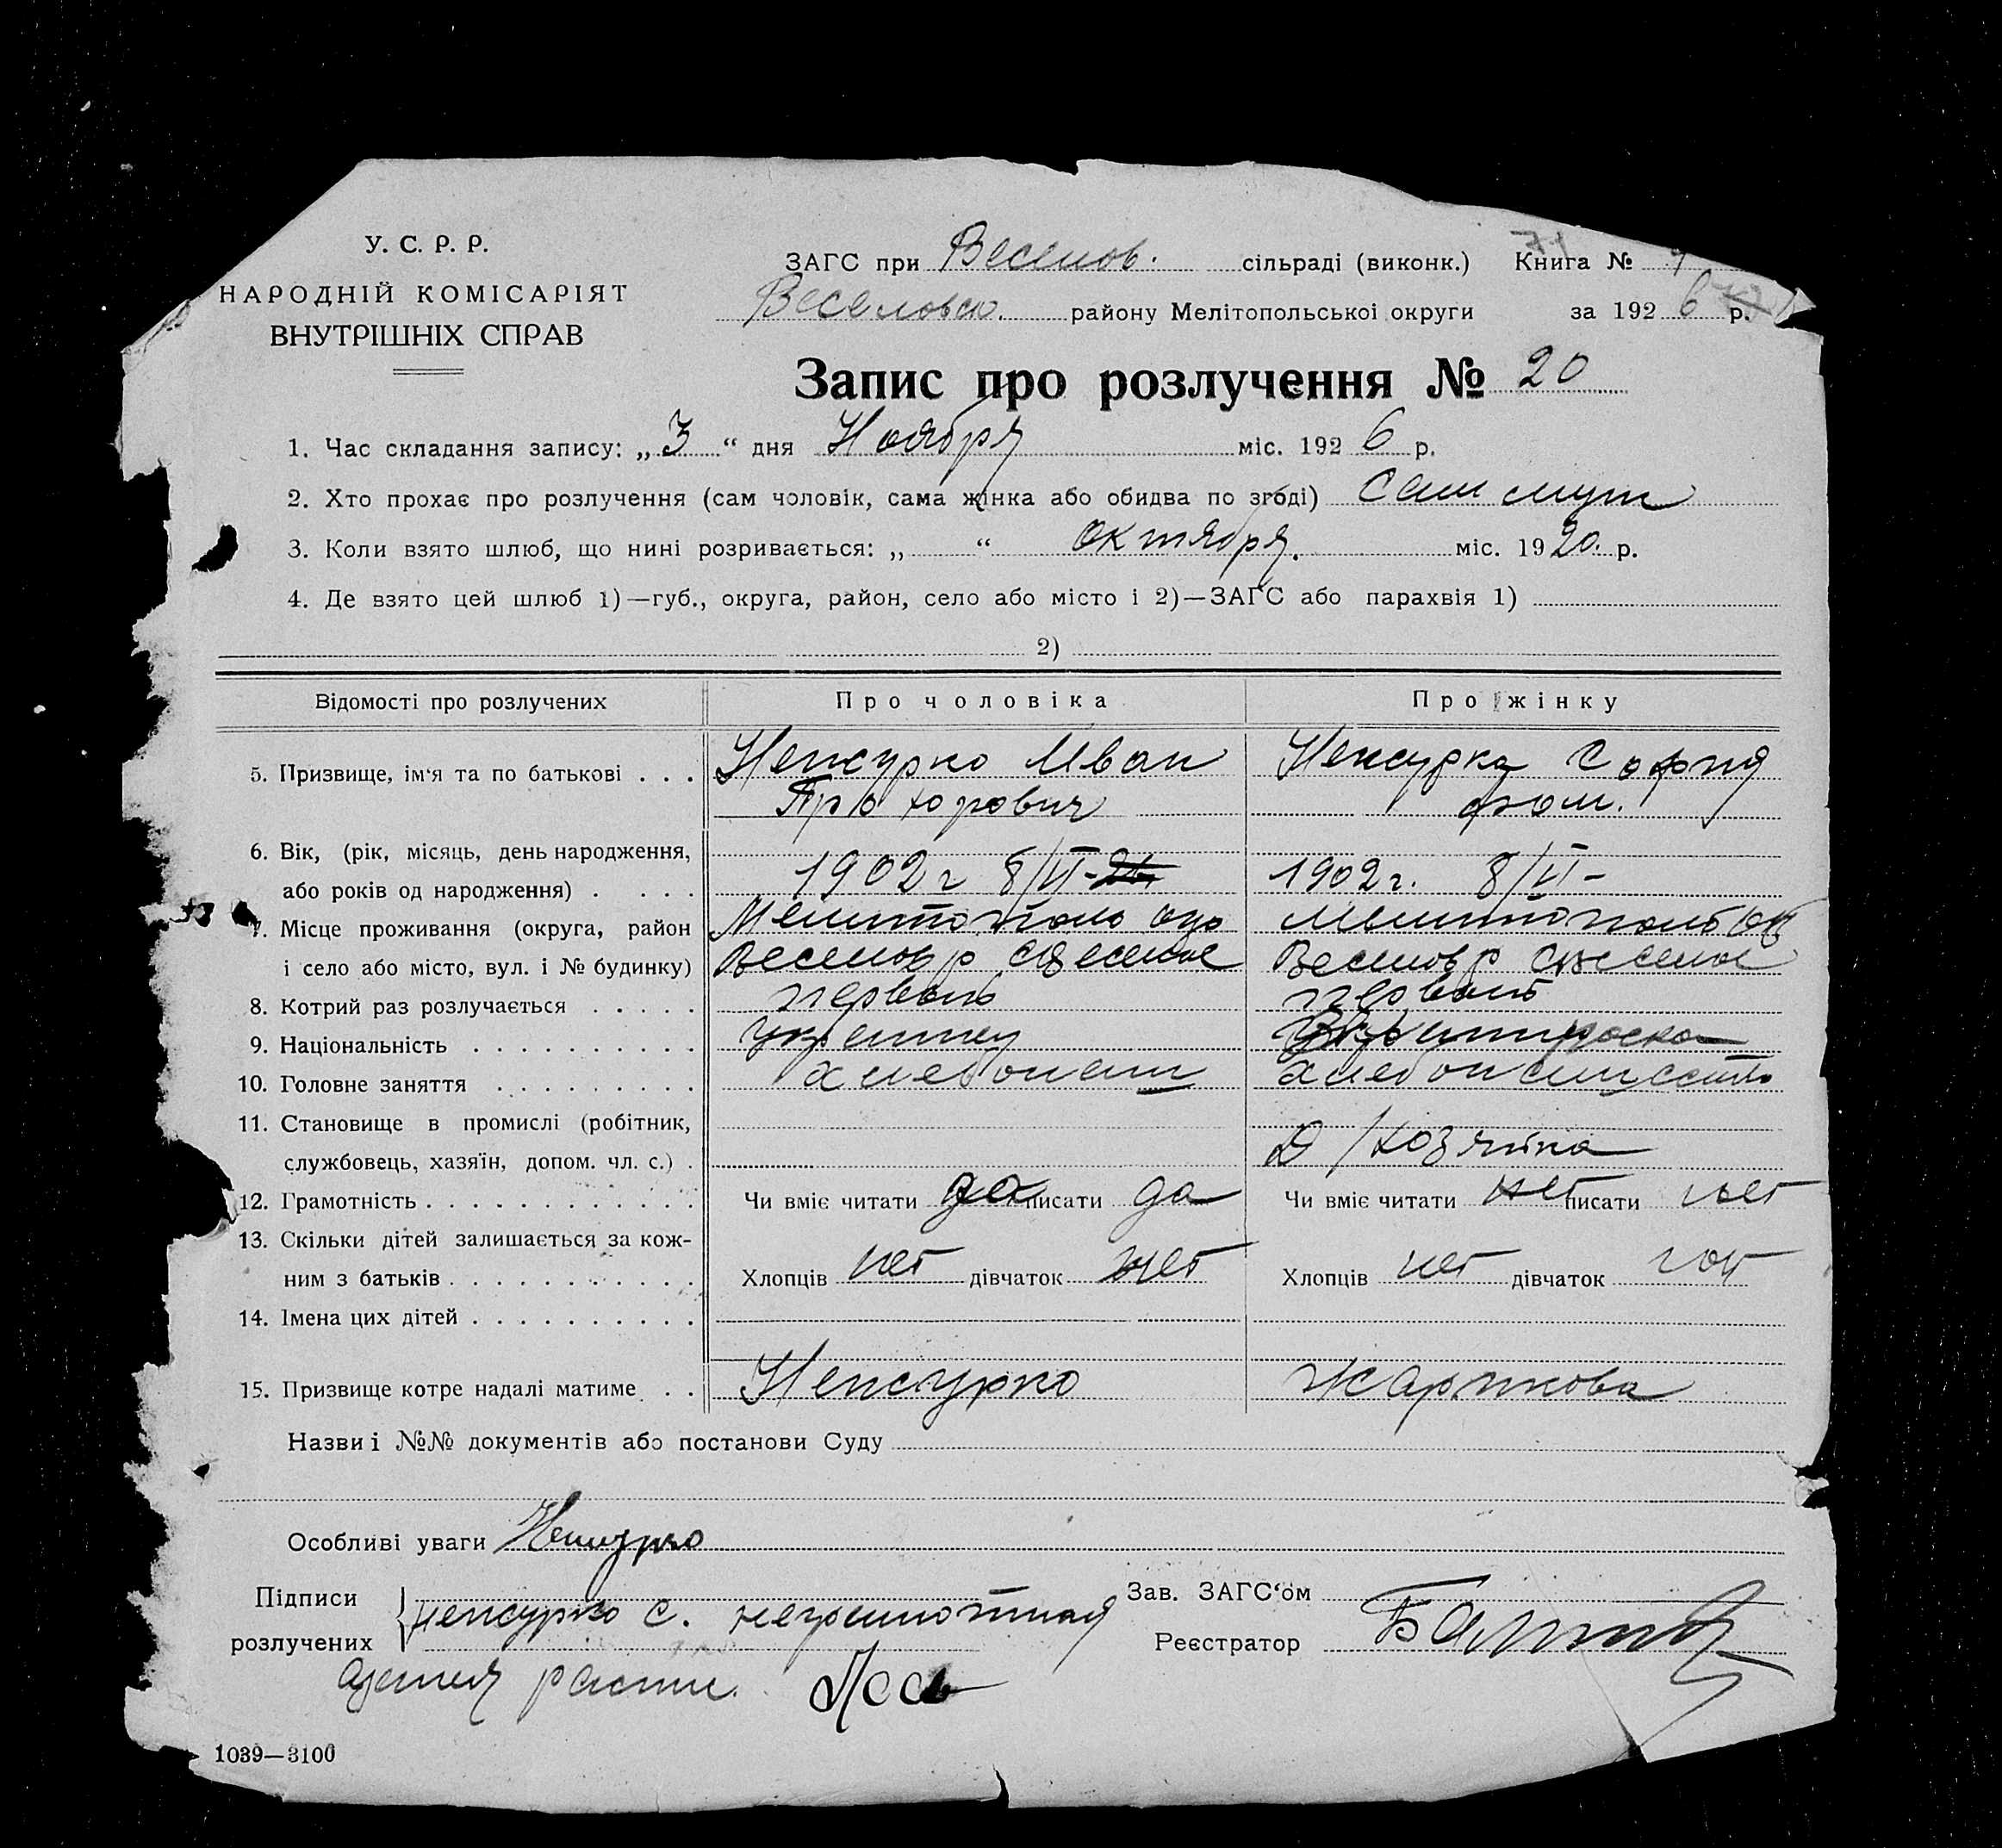 У. С. Р. Р.
НАРОДНІЙ КОМІСАРІЯТ
ВНУТРІШНІХ СПРАВ
71
ЗАГС при Веселов. сільраді (виконк.) Книга №
Веселовск. району Мелітопольської округи за 192 6 р.
Запис про розлучення № 20
1. Час складання запису: „ 3 “ дня Ноября міс. 192 6 р.
2. Хто прохає про розлучення (сам чоловік, сама жінка або обидва по згоді) Сам муж
3. Коли взято шлюб, що нині розривається: „ “ октября. міс. 19 20. р.
4. Де взято цей шлюб 1)—губ., округа, район, село або місто і 2)—ЗАГС або парахвія 1)
2)
Відомості про розлучених Про чоловіка Про жінку
5. Призвище, ім‘я та по батькові . . . Иван София
Прохорович
6. Вік, (рік, місяць, день народження,
або років од народження) . . . . . 1902 г 8/VI- 1902 г. 8/VI-
7. Місце проживання (округа, район Мелитополь окр Мелитополь ок
і село або місто, вул. і № будинку) Веселов р с Веселое Веселов р с Веселое
8. Котрий раз розлучається . . . . . первый первый
9. Національність . . . . . . . . . . украинец
10. Головне заняття . . . . . . . . . хлебопаш
11. Становище в промислі (робітник,
службовець, хазяїн, допом. чл. с.) . Д/хозяйка
12. Грамотність . . . . . . . . . . . . Чи вміє читати да писати да Чи вміє читати нет писати нет
13. Скільки дітей залишається за кож-
ним з батьків . . . . . . . . . . . Хлопців нет дівчаток нет Хлопців нет дівчаток нет
14. Імена цих дітей . . . . . . . . . .
15. Призвище котре надалі матиме . . Жарикова
Назви і №№ документів або постанови Суду
Особливі уваги
Підписи
розлучених с. неграмотная
Зав. ЗАГС‘ом
Реєстратор
1039—3100